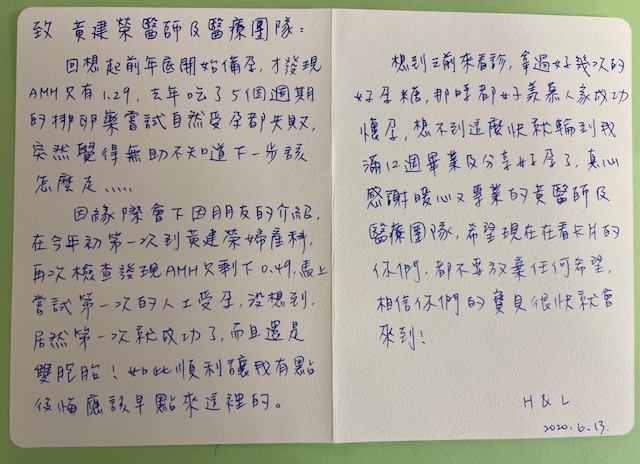 致 黃建榮醫師及醫療團隊：
回想起前年底開始備孕，才發現
AMH只有1.29，去年吃了5個週期
的排卵藥嘗試自然受孕都失敗，
突然覺得無助不知道下一步該
怎麼走.....
因緣際會下因朋友的介紹，
在今年初第一次到黃建榮婦產科，
再次檢查發現AMH只剩下0.49，馬上
嘗試第一次的人工受孕，沒想到，
居然第一次就成功了，而且還是
雙胞胎！如此順利讓我有點
後悔應該早點來這裡的。
想到之前來看診，拿過好幾次的
好孕糖，那時都好羨慕人家成功
懷孕，想不到這麼快就輪到我
滿12週畢業及分享好孕了，真心
感謝暖心又專業的黃醫師及
醫療團隊，希望現在在看卡片的
你們，都不要放棄任何希望，
相信你們的寶貝很快就會
來到！
H & L
2020.6.13.